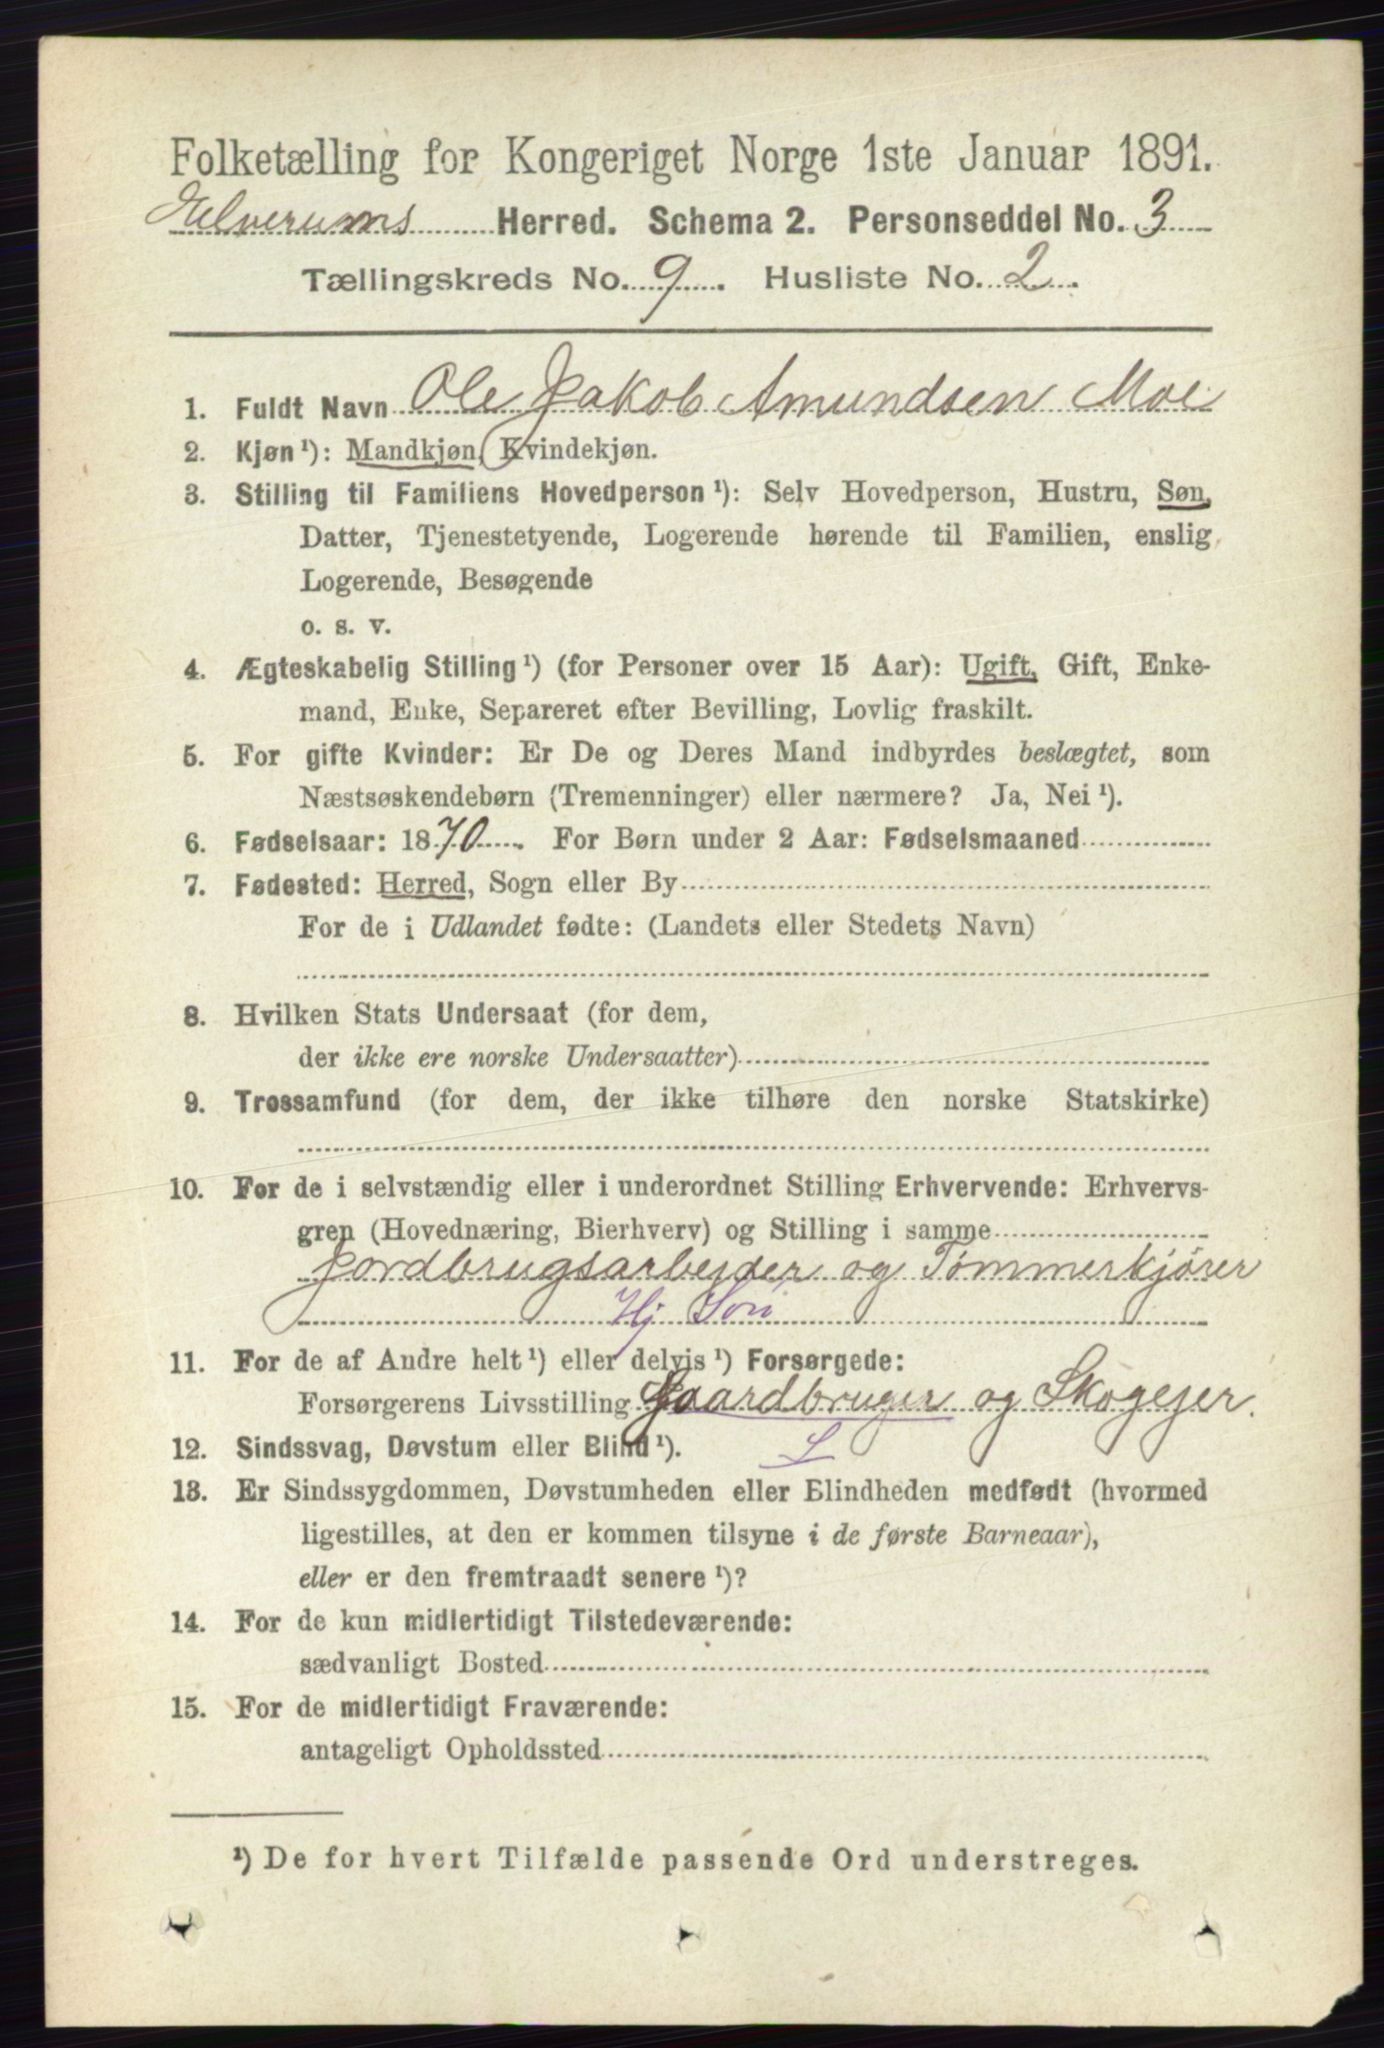 Folketælling for Kongeriget Norge 1ste Januar 1891.
Elverums Herred. Schema 2. Personseddel No. 3
Tællingskreds No. 9. Husliste No. 2.
1. Fuldt Navn Ole Jakob Amundsen Moe
2. Kjøn¹): Mandkjøn, Kvindekjøn.
3. Stilling til Familiens Hovedperson¹): Selv Hovedperson, Hustru, Søn,
Datter, Tjenestetyende, Logerende hørende til Familien, enslig
Logerende, Besøgende
o. s. v.
4. Ægteskabelig Stilling¹) (for Personer over 15 Aar): Ugift, Gift, Enke-
mand, Enke, Separeret efter Bevilling, Lovlig fraskilt.
5. For gifte Kvinder: Er De og Deres Mand indbyrdes beslægtet, som
Næstsøskendebørn (Tremenninger) eller nærmere? Ja, Nei¹).
6. Fødselsaar: 1870. For Børn under 2 Aar: Fødselsmaaned
7. Fødested: Herred, Sogn eller By
For de i Udlandet fødte: (Landets eller Stedets Navn)
8. Hvilken Stats Undersaat (for dem,
der ikke ere norske Undersaatter)
9. Trossamfund (for dem, der ikke tilhøre den norske Statskirke)
10. For de i selvstændig eller i underordnet Stilling Erhvervende: Erhvervs-
gren (Hovednæring, Bierhverv) og Stilling i samme
Jordbrugsarbejder og Tömmerkjörer
Hj Sön
11. For de af Andre helt¹) eller delvis¹) Forsørgede:
Forsørgerens Livsstilling Gaardbruger og Skogejer.
12. Sindssvag, Døvstum eller Blind¹). S
13. Er Sindssygdommen, Døvstumheden eller Blindheden medfødt (hvormed
ligestilles, at den er kommen tilsyne i de første Barneaar),
eller er den fremtraadt senere¹)?
14. For de kun midlertidigt Tilstedeværende:
sædvanligt Bosted
15. For de midlertidigt Fraværende:
antageligt Opholdssted
¹) De for hvert Tilfælde passende Ord understreges.